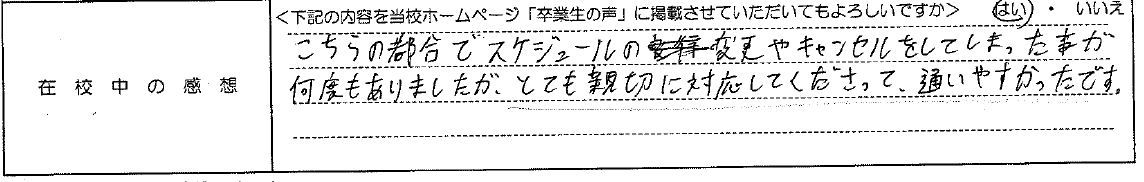 <下記の内容を当校ホームページ「卒業生の声」に掲載させていただいてもよろしいですか> はい ・ いいえ
在校中の感想
こちらの都合でスケジュールの変更やキャンセルをしてしまった事が
何度もありましたが、とても親切に対応してくださって、通いやすかったです。